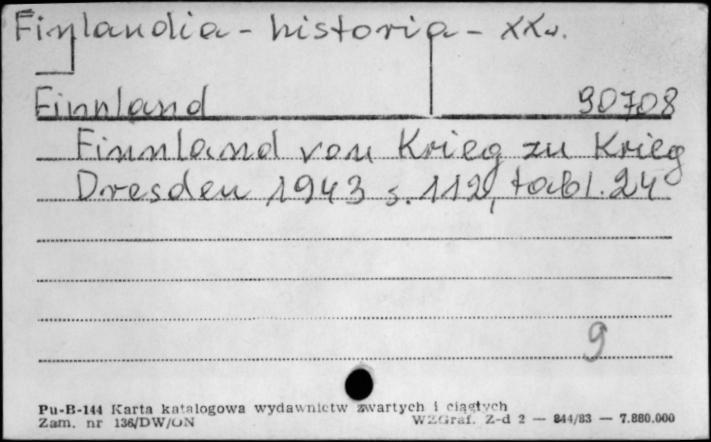 Finlandia - historia - XXw.
Finnland 90708
Finnland von Krieg zu Krieg
Dresden 1943 s. 112, tabl. 24
9
Pu-B-144 Karta katalogowa wydawnictw zwartych i ciągłych
Zam. nr 136/DW/ON WZGraf. Z-d 2 — 844/83 — 7.880.000